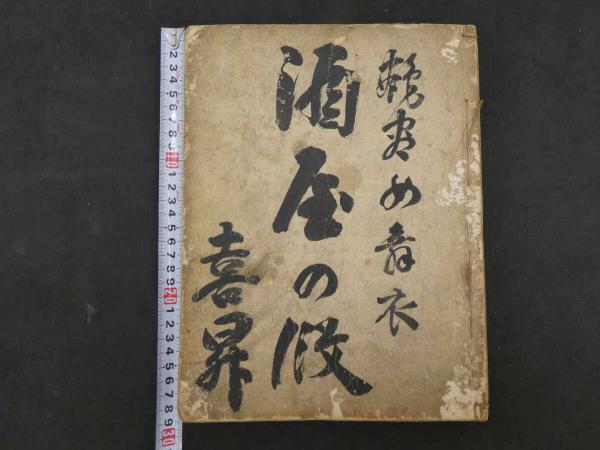 艶容女舞衣
酒屋の段
喜昇
1 2 3 4 5 6 7 8 9 10 1 2 3 4 5 6 7 8 9 20 1 2 3 4 5 6 7 8 9 30